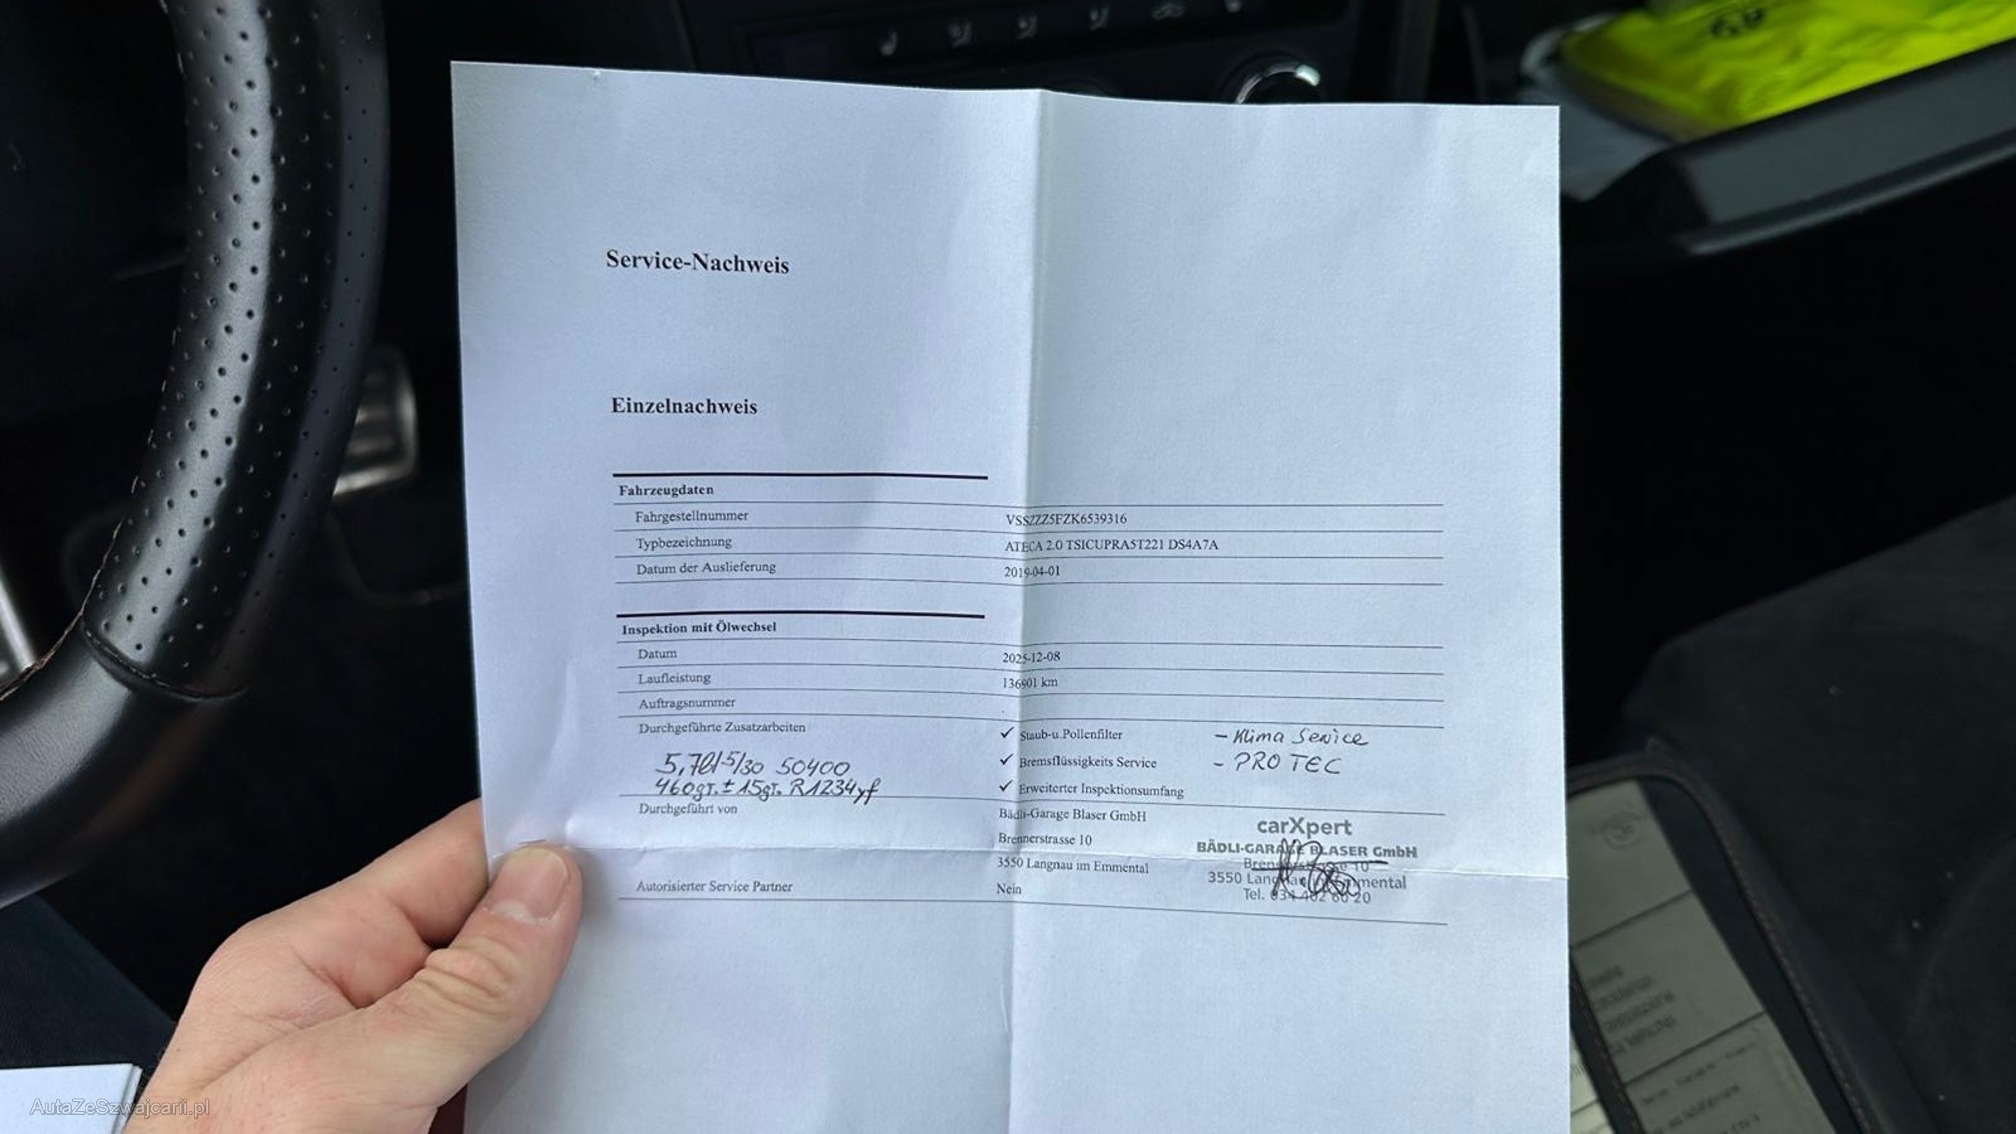 Service-Nachweis
Einzelnachweis
Fahrzeugdaten
Fahrgestellnummer VSSZZZ5FZK6539316
Typbezeichnung ATECA 2.0 TSICUPRA5T221 DS4A7A
Datum der Auslieferung 2019-04-01
Inspektion mit Ölwechsel
Datum 2025-12-08
Laufleistung 136901 km
Auftragsnummer
Durchgeführte Zusatzarbeiten ✓ Staub-u.Pollenfilter - Klima Service
5,7l 5/30 50400 ✓ Bremsflüssigkeits Service - PRO TEC
460gr. ± 15gr. R1234yf ✓ Erweiterter Inspektionsumfang
Durchgeführt von Bädli-Garage Blaser GmbH
Brennerstrasse 10
3550 Langnau im Emmental
Autorisierter Service Partner Nein
carXpert
BÄDLI-GARAGE BLASER GmbH
10
3550
Tel. 20
AutaZeSzwajcarii.pl